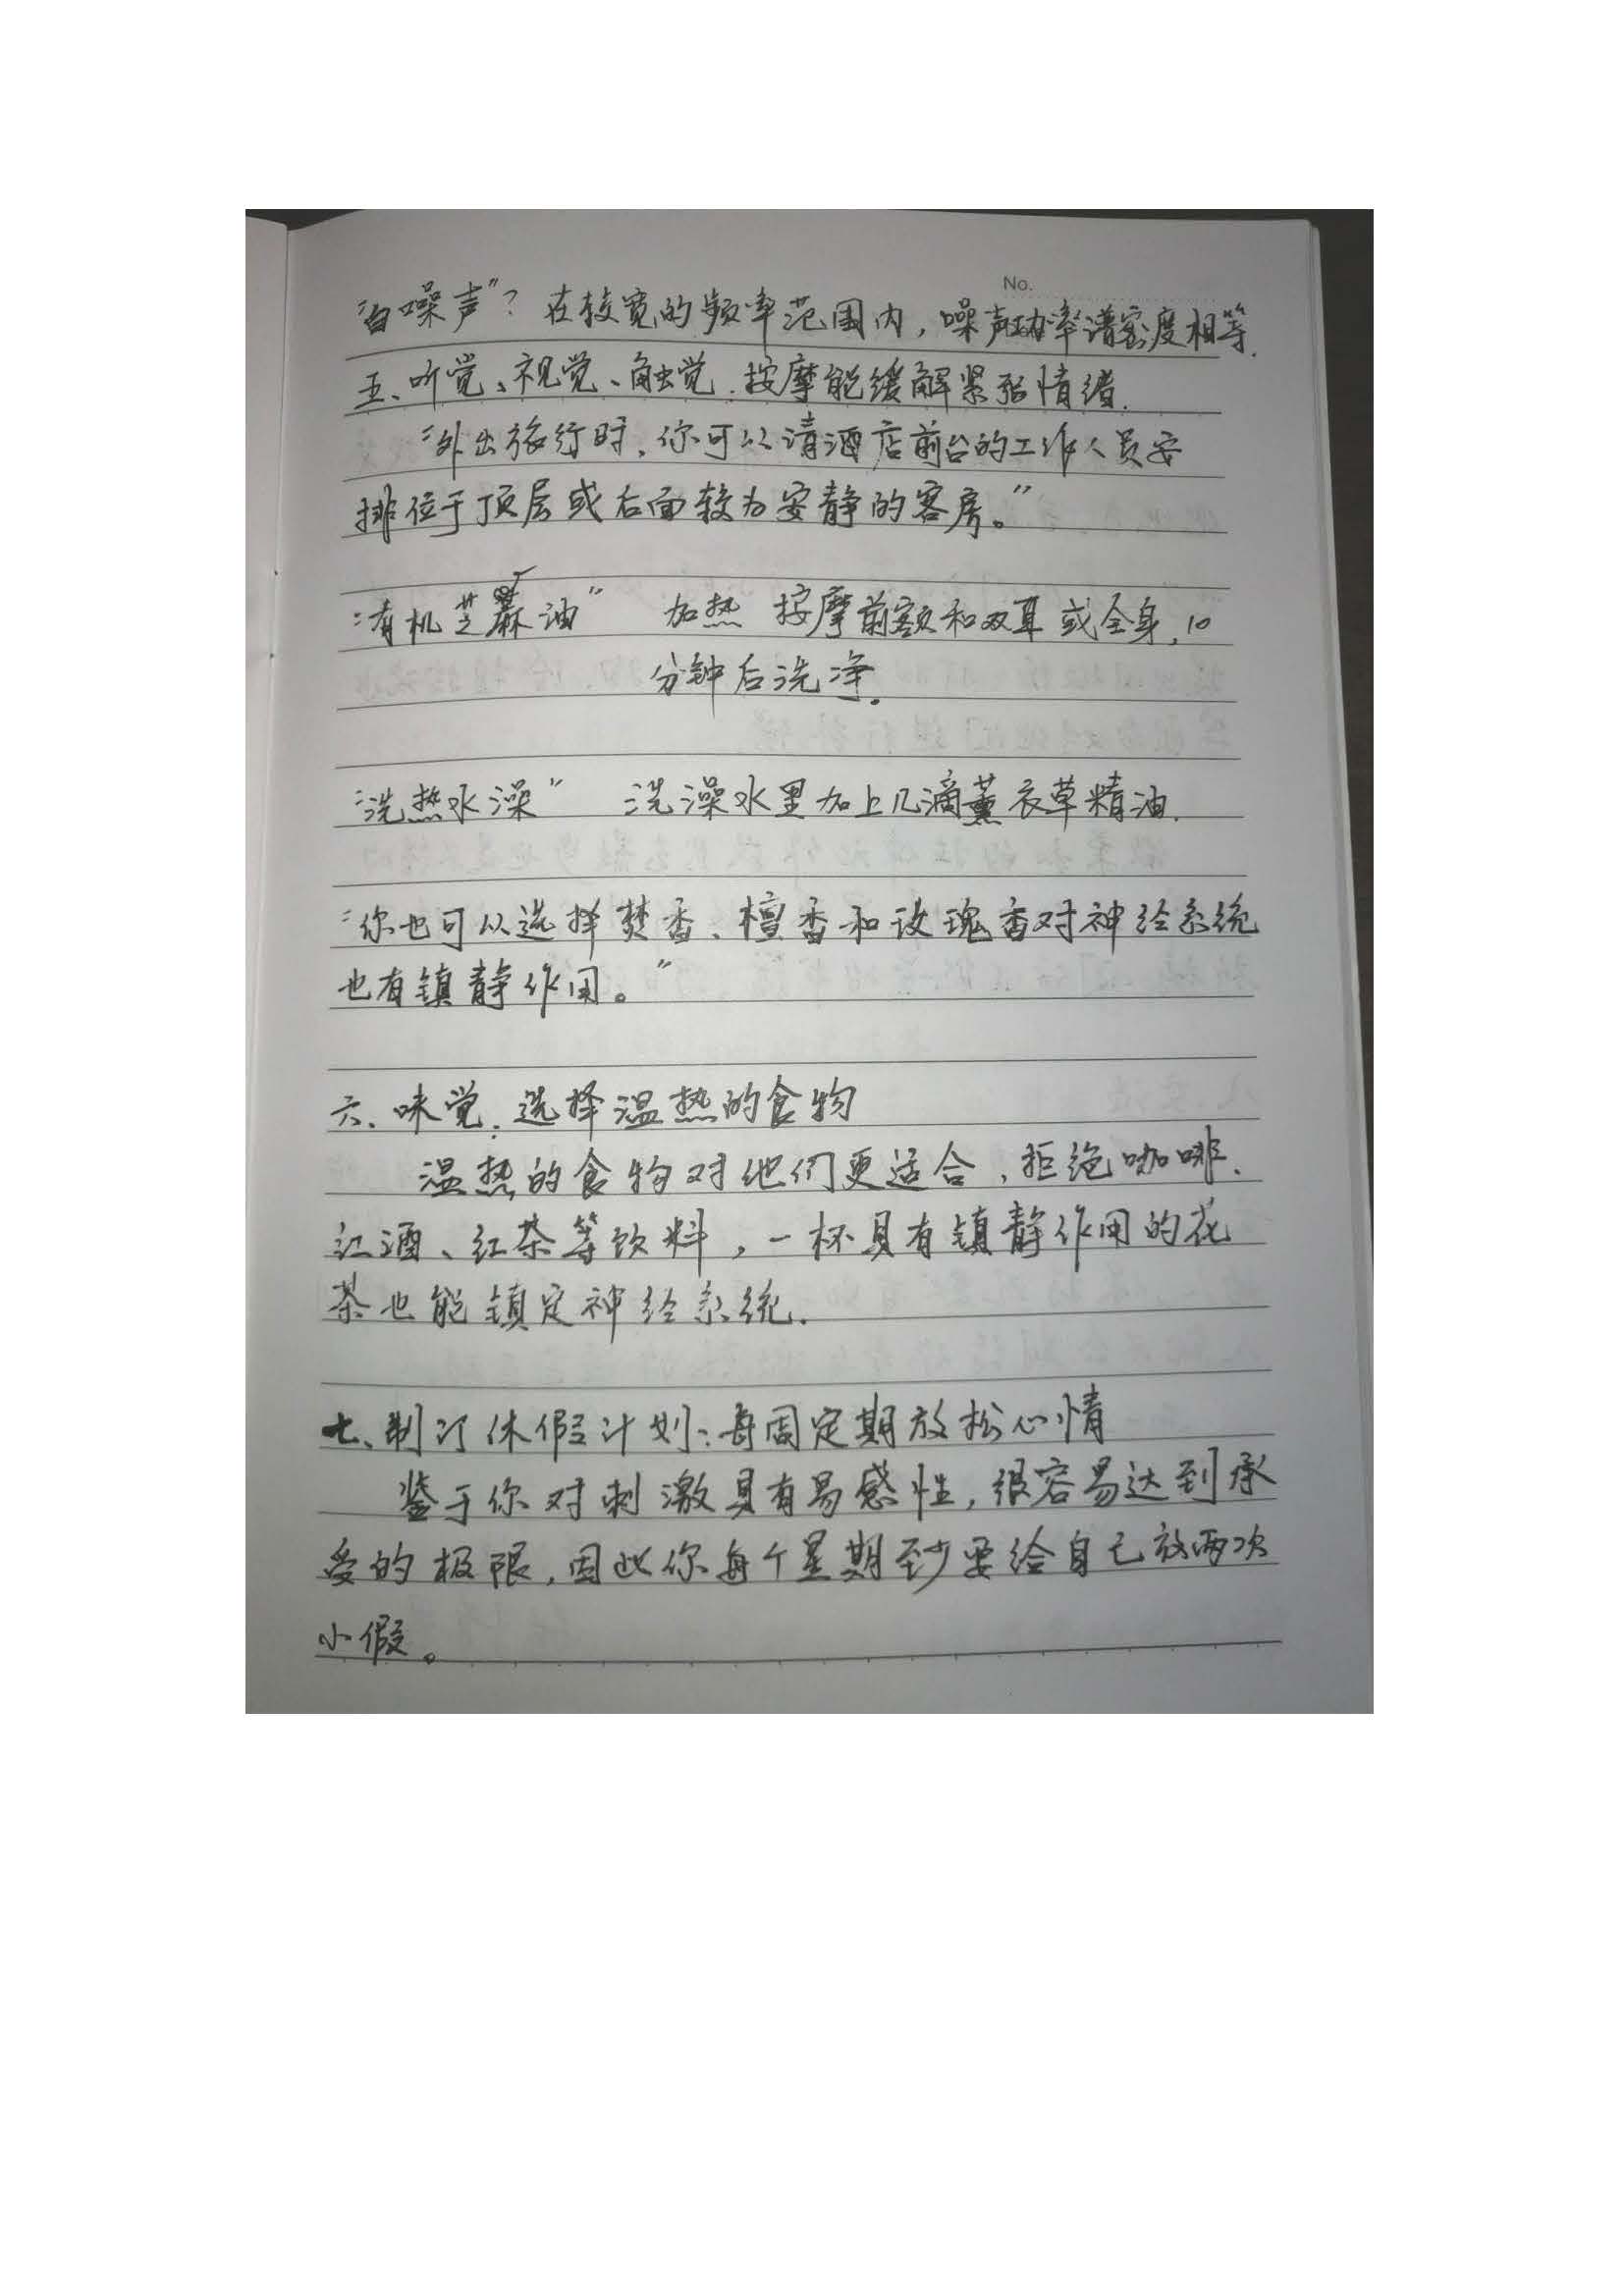 No.
“白噪声”？在较宽的频率范围内，噪声功率谱密度相等.
五、听觉、视觉、触觉：按摩能缓解紧张情绪.
“外出旅行时，你可以请酒店前台的工作人员安
排位于顶层或后面较为安静的客房。”
“有机芝麻油” 加热 按摩前额和双耳或全身，10
分钟后洗净.
“洗热水澡” 洗澡水里加上几滴薰衣草精油.
“你也可以选择焚香、檀香和玫瑰香对神经系统
也有镇静作用。”
六、味觉：选择温热的食物
温热的食物对他们更适合，拒绝咖啡、
红酒、红茶等饮料，一杯具有镇静作用的花
茶也能镇定神经系统.
七、制订休假计划：每周定期放松心情
鉴于你对刺激具有易感性，很容易达到承
受的极限，因此你每个星期至少要给自己放两次
小假。